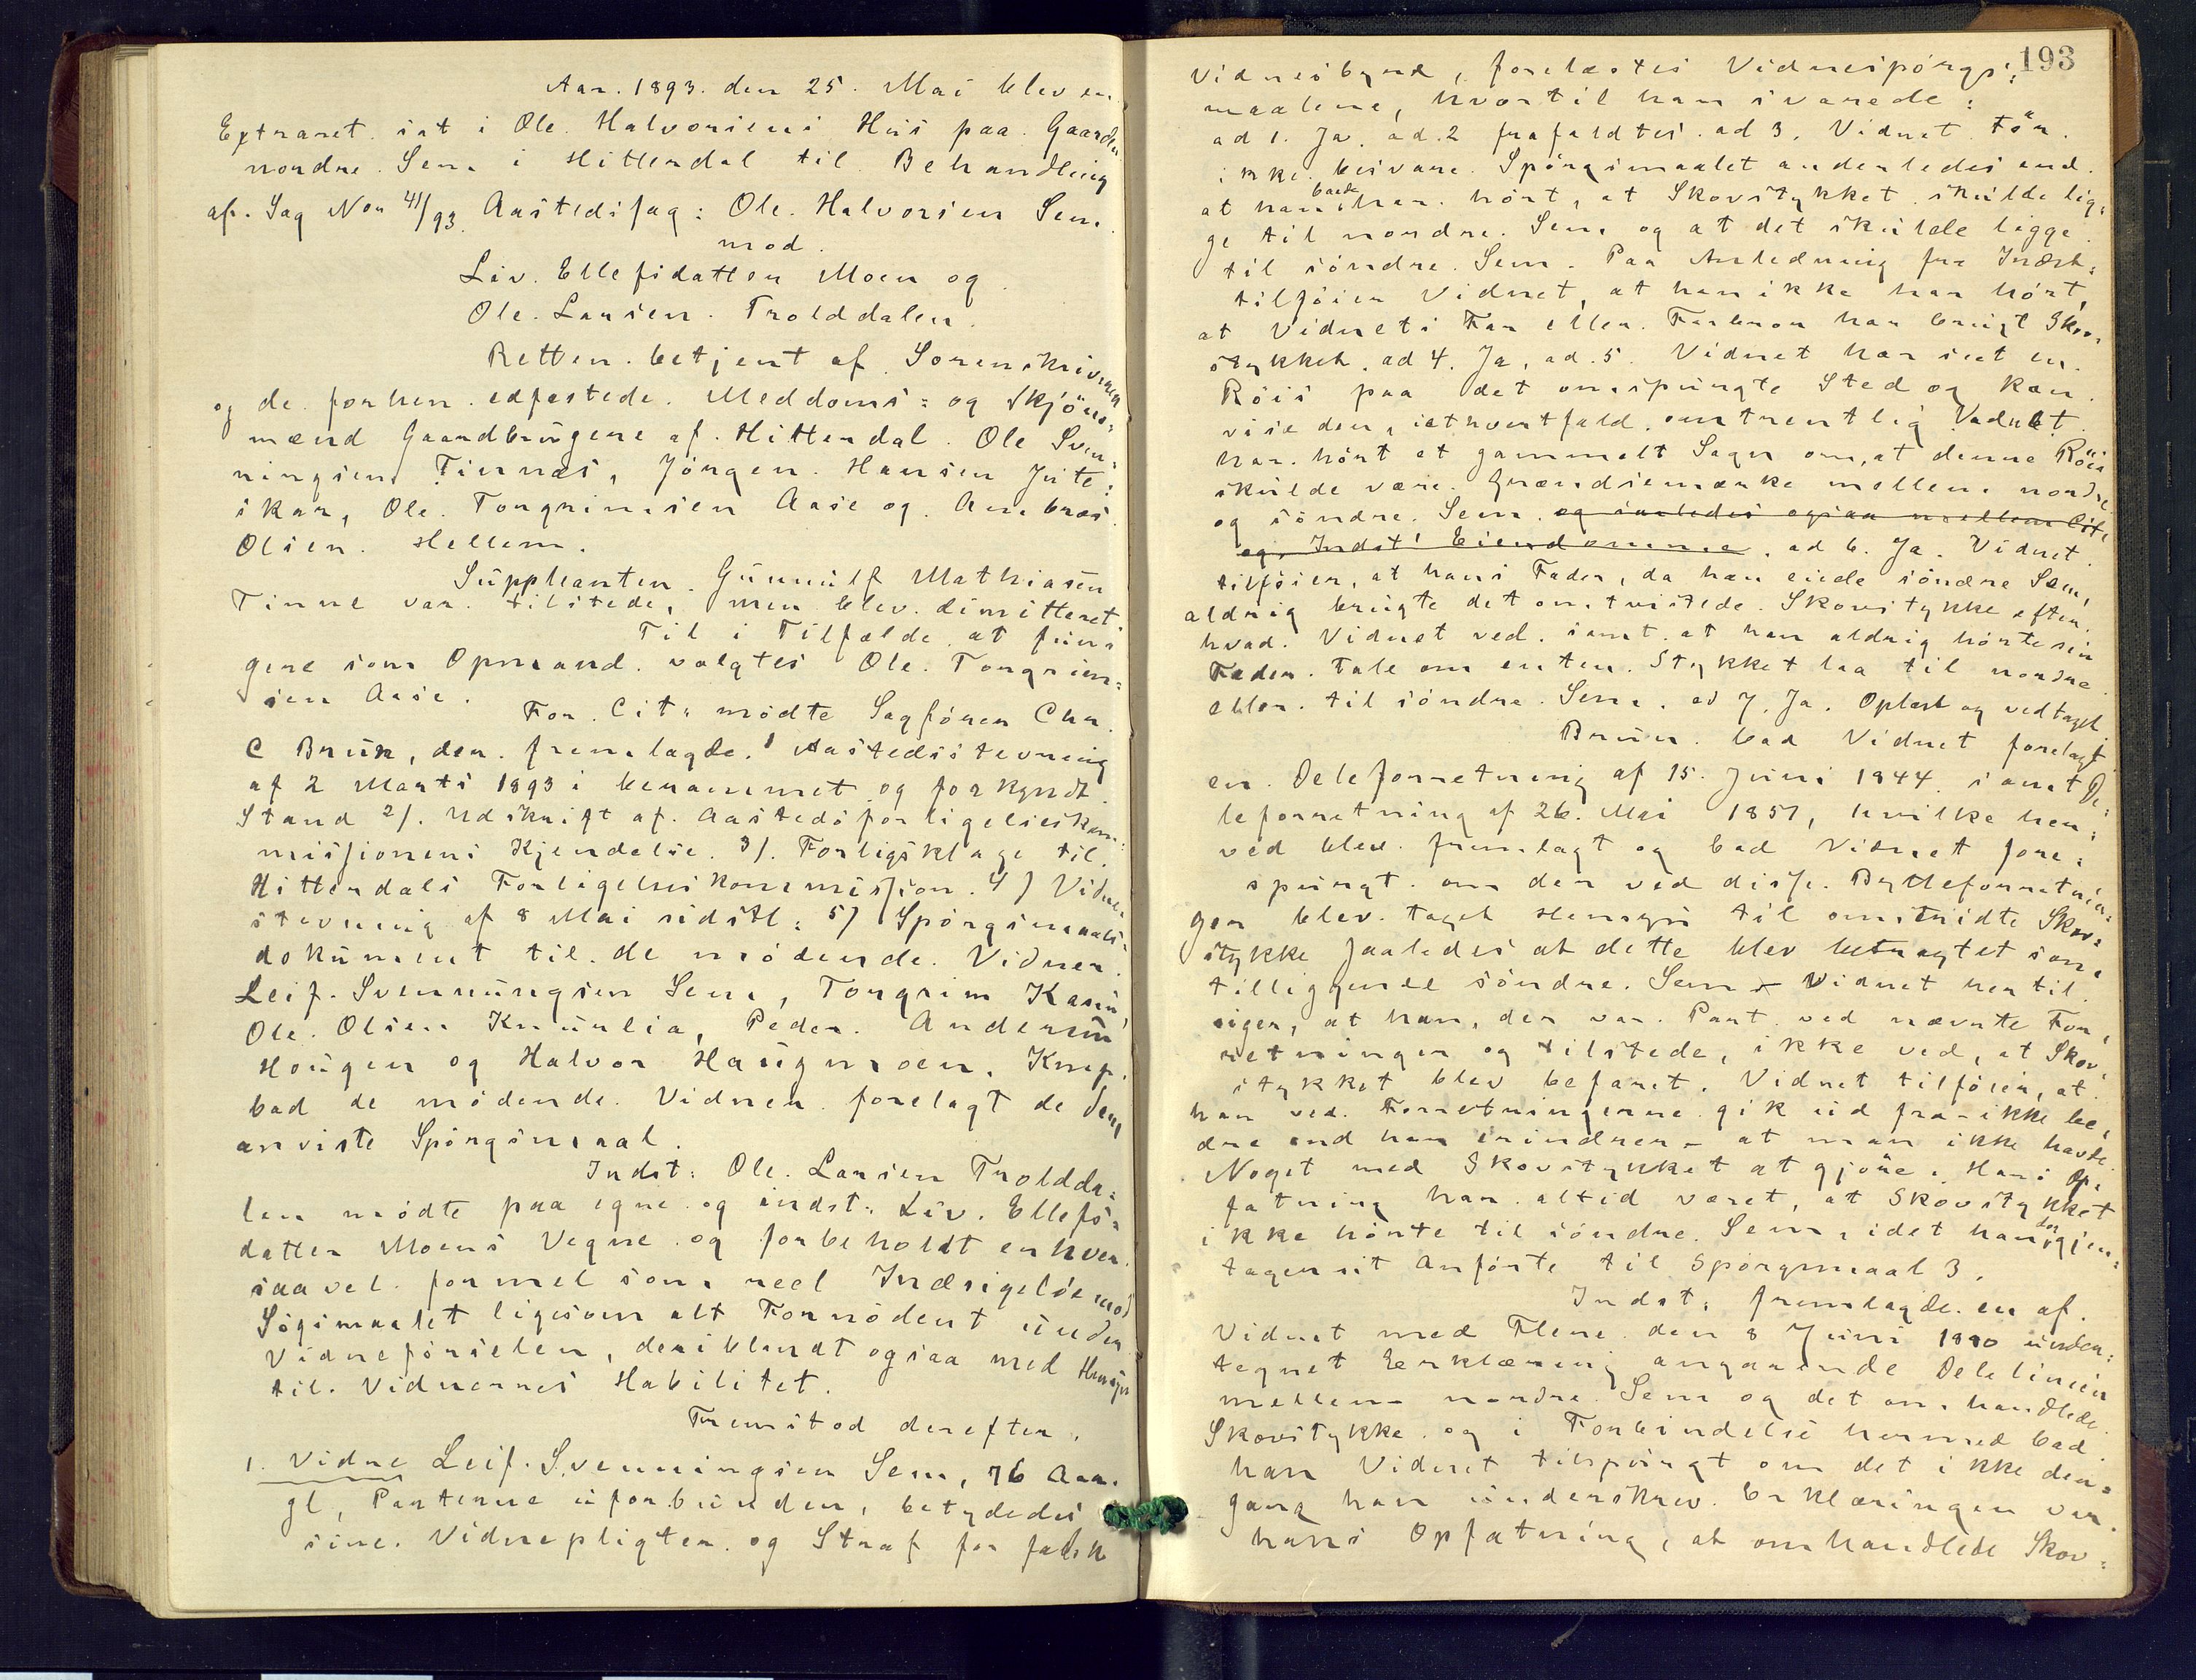 Aar. 1893. den 25. Mai blev en
Extraret. sat i Ole. Halvorsens Hus paa. Gaarden
nordre. Sem. i Hitterdal til Behandling
af. Sag No. 41/93. Aastedssag: Ole. Halvorsen Sem.
mod.
Liv. Ellefsdatter Moen og
Ole. Larsen. Trolddalen.
Retten. betjent af. Sorenskriveren
og de forhen. edfæstede. Meddoms= og Skjöns=
mænd Gaardbrugere af. Hitterdal. Ole Sven=
ningsen Tinnæs, Jörgen. Hansen Jute=
skar, Ole. Torgrimsen Aase og. Ambros.
Olsen. Hellem.
Suppleanten. Gunnulf Mathiasen
Tinne var. tilstede, men blev. dimitteret.
Til i Tilfælde. at fun=
gere som Opmand. valgtes Ole. Torgrim=
sen Aase.
For. Cit: mödte Sagförer Chr.
C Bruun, der. fremlagde. 1 Aastedsstevning
af 2 Marts 1893 i berammet og forkyndt.
Stand 2). Udskrift af. Aastedsforligelseskom=
missionens Kjendelse. 3). Forligsklage til.
Hitterdals Forligelseskommission. 4) Vidne=
stevning af 8 Mai sidstl: 5) Spörgsmaals=
dokument til. de mödende. Vidner.
Leif. Svennungsen Sem, Torgrim Kasin,
Ole. Olsen Knurlia, Peder. Andersen
Hougen og Halvor Haugmoen. Kmp.
bad de mödende. Vidner. forelagt de dem
anviste Spörgsmaal.
Indst: Ole. Larsen Troldda=
len mödte paa egne og indst: Liv. Ellefs=
datter Moens Vegne og forbeholdt enhver.
saavel. formel som reel Indsigelse mod
Sögsmaalet ligesom alt Fornödent under
Vidneförselen, deriblandt ogsaa med Hensyn
til. Vidnernes Habilitet.
Fremstod derefter.
1. Vidne Leif. Svenningsen Sem, 76 Aar.
gl, Parterne uforbunden, betydedes
sine. Vidnepligter. og Straf for falsk
193
Vidnesbyrd, forelæstes Vidnespörgs=
maalene, hvortil han svarede:
ad 1. Ja. ad. 2 frafaldtes. ad 3. Vidnet tör.
ikke. besvare. Spörgsmaalet anderledes end.
at han baade har. hört, at Skovstykket skulde lig=
ge til nordre. Sem. og at det skulde ligge.
til söndre. Sem. Paa Anledning fra Indst=
tilföier Vidnet, at han ikke har hört,
at Vidnets Far eller. Farbror har brugt Skov=
stykket. ad 4. Ja, ad. 5. Vidnet har seet en.
Röis paa det omspurgte Sted og kan.
vise den, iethvertfald. omtrentlig Vidnet.
har. hört et gammelt Sagn om, at denne Röis
skulde være. Grændsemærke mellem. nordre
og söndre. Sem. og saaledes ogsaa mellem Cit.
og. Indst! Eiendomme. ad 6. Ja. Vidnet.
tilföier, at hans Fader, da han eiede söndre Sem,
aldrig brugte det omtvistede. Skovstykke efter.
hvad. Vidnet ved. samt. at han aldrig hörte sin
Fader. tale om enten. Stykket laa til nordre.
eller. til söndre. Sem. ad 7. Ja. Oplæst og vedtaget.
Bruun. bad Vidnet forelagt
en. Deleforretning af 15. Juni 1844. samt De=
leforretning af 26. Mai 1851, hvilke her=
ved blev. fremlagt og bad Vidnet fore=
spurgt. om der ved disse. Bytteforretnin=
ger blev. taget Hensyn til omtvidte Skov=
stykke saaledes at dette blev betragtet som
tilliggende söndre. Sem. Vidnet hertil.
siger, at han, der var. Part. ved nævnte For=
retninger og tilstede, ikke ved, at Skov=
stykket blev befaret. Vidnet tilföier, at.
han ved. Forretningerne gik ud fra - ikke be=
dre end han erindrer - at man ikke havde
Noget med Skovstykket at gjöre. Hans Op=
fatning har. altid været, at Skovstykket
ikke hörte til söndre. Sem, idet han dog gjen=
tager sit Anförte til Spörgsmaal 3.
Indst: fremlagde. en af.
Vidnet med Flere. den 8 Juni 1890 under=
tegnet Erklæring angaaende Delelinien
mellem nordre. Sem og det omhandlede.
Skovstykke. og i Forbindelse hermed bad.
han Vidnet tilspurgt om det ikke den=
gang han underskrev. Erklæringen var.
hans Opfatning, at omhandlede Skov=